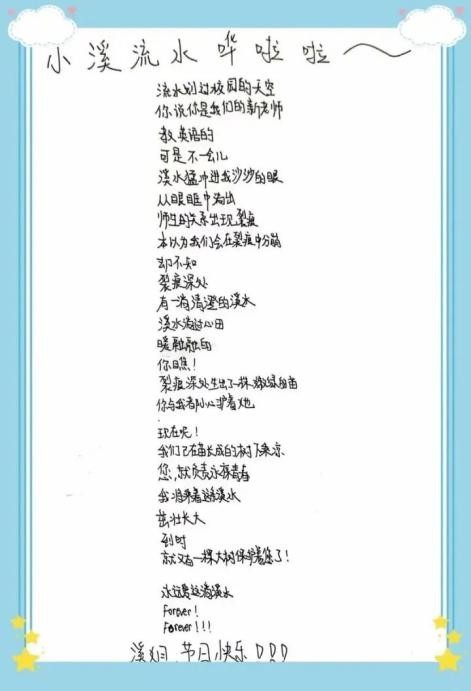 小溪流水哗啦啦～
流水划过校园的天空
你说你是我们的新老师
教英语的
可是不一会儿
溪水猛冲进我沙沙的眼
从眼眶中流出
师生的关系出现裂痕
本以为我们会在裂痕中分崩
却不知
裂痕深处
有一清清澄的溪水
溪水淌过心田
暖融融的
你瞧！
裂痕深处生出了一棵嫩绿的苗
你与我都小心护着她
现在呢！
我们已在苗长成的树下乘凉
您，就负责永葆青春
我将来着这清溪水
茁壮长大
到时
就又有一棵大树保护着您了！
永远爱这清溪水
Forever！
Forever！！！
溪 节日快乐！！！